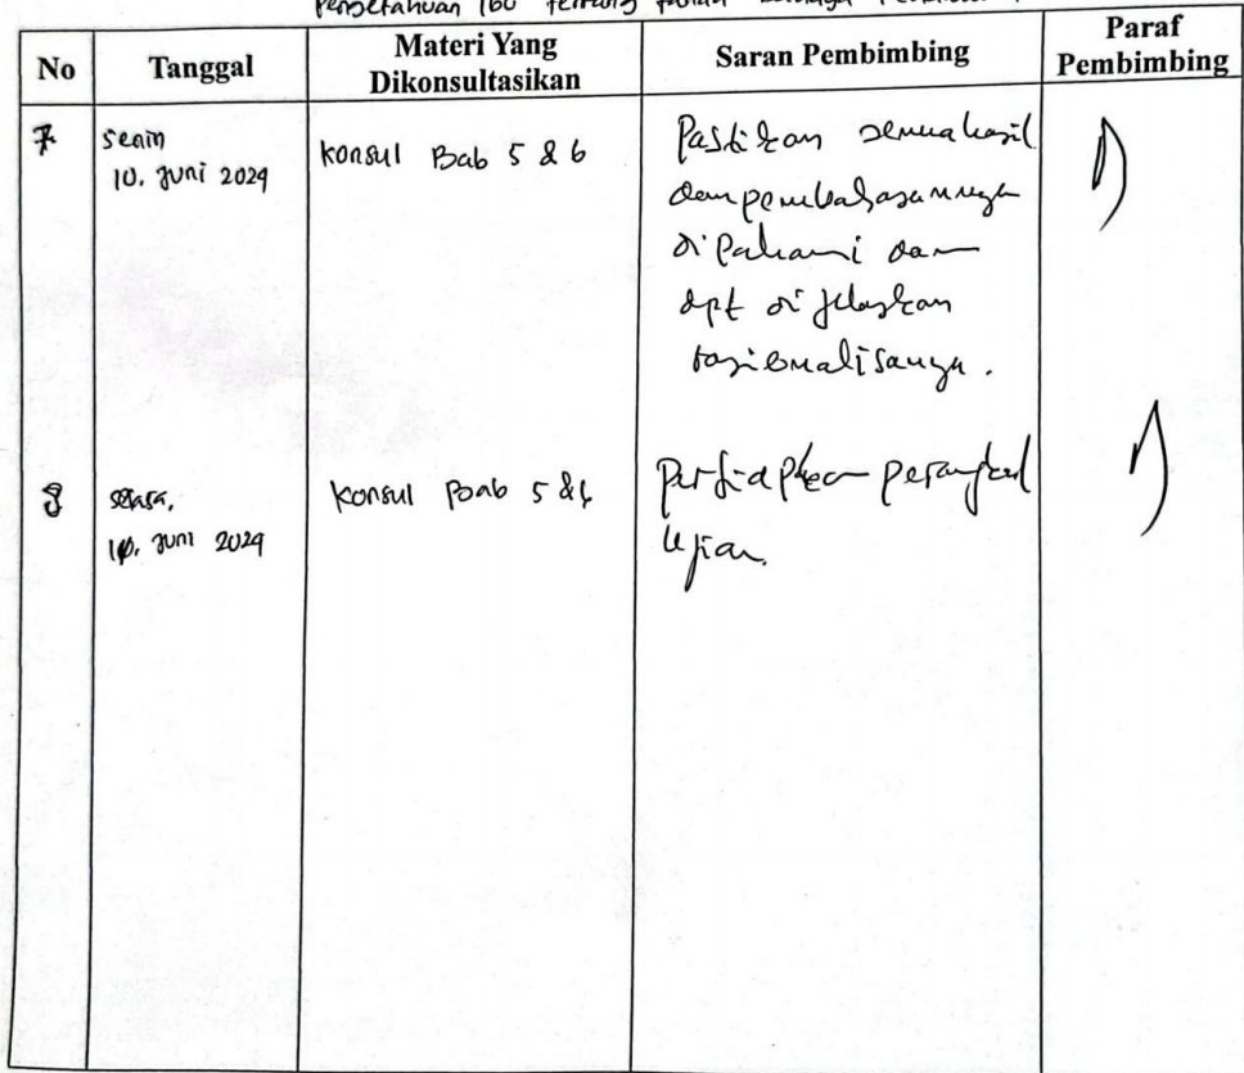 Pengetahuan Ibu tentang
No
Tanggal
Materi Yang
Dikonsultasikan
Saran Pembimbing
Paraf
Pembimbing
7
senin
10. Juni 2024
konsul Bab 5 & 6
Pastikan semua hasil
dan pembahasannya
dipahami dan
dpt dijelaskan
rasionalisanya.
8
selasa,
Juni 2024
konsul Bab 5 & 6
Persiapkan perangkat
Ujian.